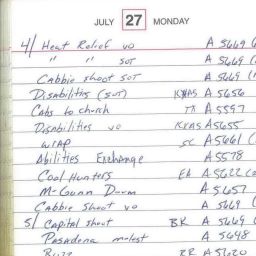 JULY 27 MONDAY
4/ Heat Relief vo A 5669
" " SOT A 5669
Cabbie shoot SOT A 5669
Disabilities (SOT) KXAS A 5656
Cabs to church TX A 5597
Disabilities vo KXAS A5655
WRAP SC A 5661
Abilities Exchange A5578
Cool Hunters EA A 5622
McGunn Dorm A 5657
Cabbie Shoot vo A 5669
5/ Capital shoot BR A 5669
Pasadena molest A 5648
A 5620